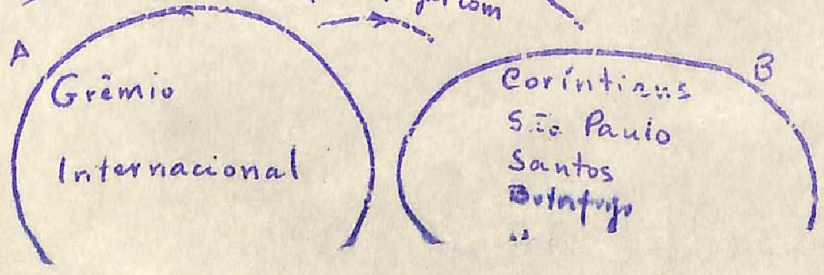 com
A
B
Grêmio
Internacional
Coríntians
São Paulo
Santos
Botafogo